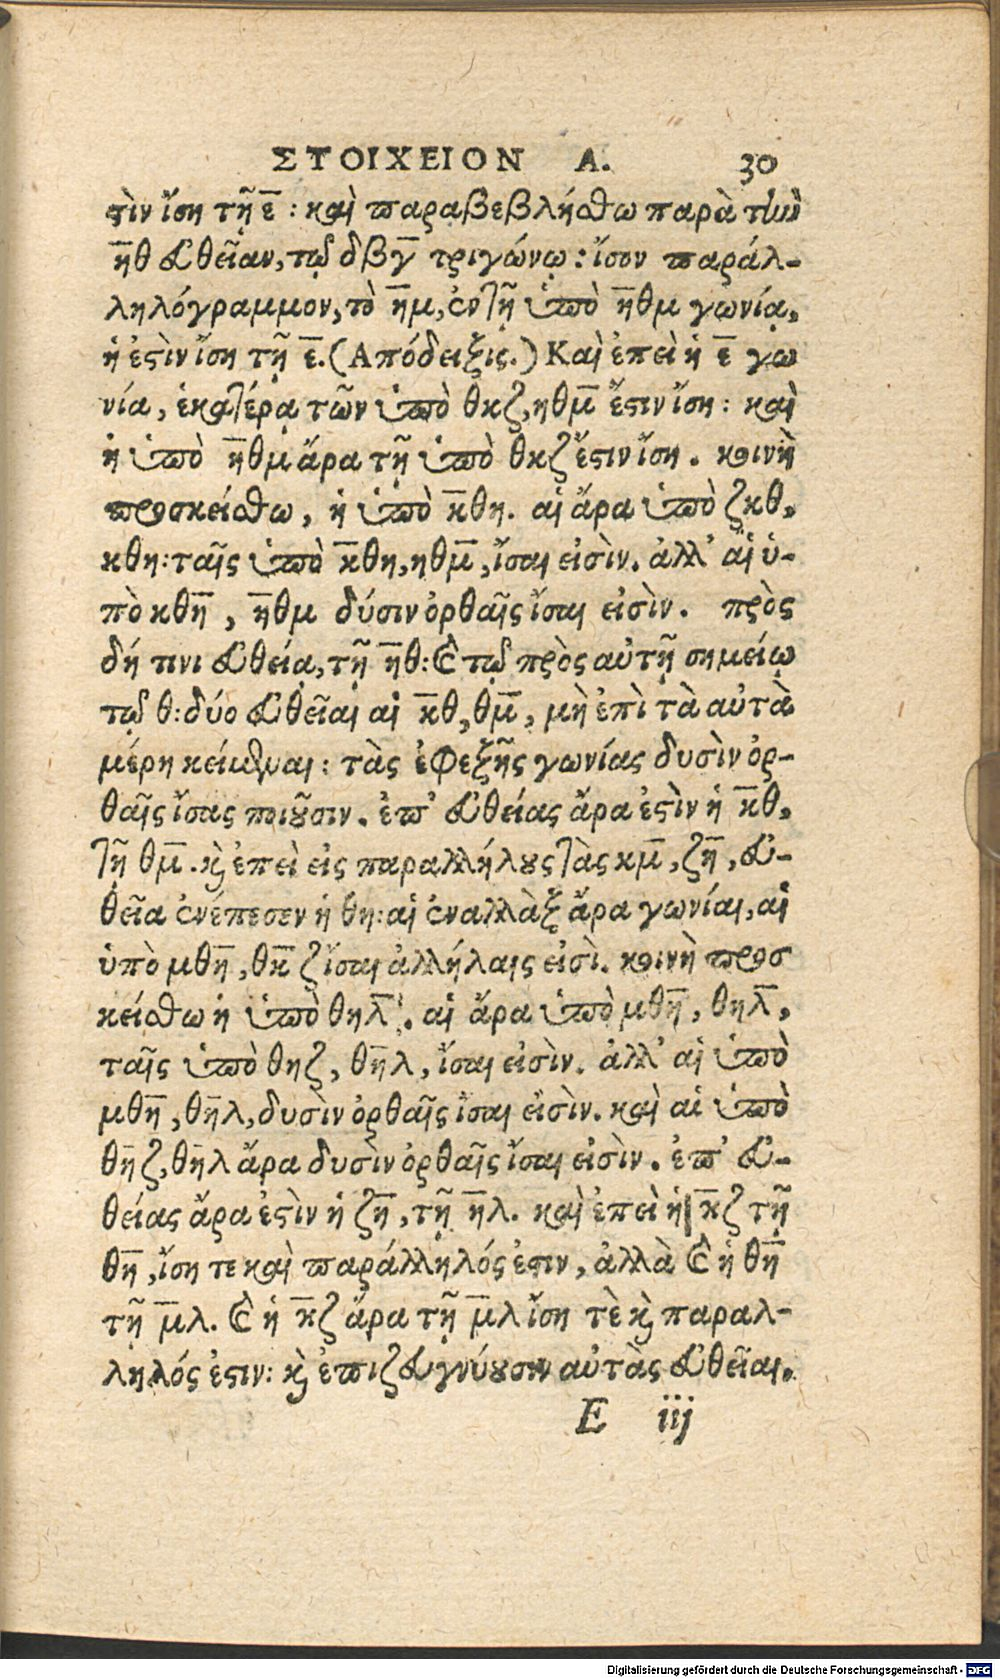 ΣΤΟΙΧΕΙΟΝ Α. 30
στὶν ἴση τῇ ε̅ : καὶ παραβεβλήσθω παρὰ τὴν
η̅θ εὐθεῖαν, τῷ δβγ̅ τριγώνῳ : ἴσον παράλ-
ληλόγραμμον, τὸ η̅μ, ἐν τῇ ὑπὸ η̅θμ γωνίᾳ,
ἥ ἐστὶν ἴση τῇ ε̅. (Απόδειξις.) Καὶ ἐπεὶ ἡ ε̅ γω
νία, ἑκατέρᾳ τῶν ὑπὸ θκζ, ηθμ̅ ἔστιν ἴση : καὶ
ἡ ὑπὸ η̅θμ ἄρα τῇ ὑπὸ θκζ ἔστιν ἴση. κοινὴ
προσκείσθω, ἡ ὑπὸ κ̅θη. αἱ ἄρα ὑπὸ ζκθ,
κθη : ταῖς ὑπὸ κ̅θη, ηθμ̅, ἴσαι εἰσὶν. ἀλλ’ αἱ ὑ-
πὸ κθη̅, η̅θμ δύσιν ὀρθαῖς ἴσαι εἰσὶν. πρὸς
δή τινι εὐθείᾳ, τῇ η̅θ : καὶ τῷ πρὸς αὐτῇ σημείῳ
τῷ θ : δύο εὐθεῖαι αἱ κ̅θ, θμ̅, μὴ ἐπὶ τὰ αὐτὰ
μέρη κείμεναι : τὰς ἐφεξῆς γωνίας δυσὶν ὀρ-
θαῖς ἴσας ποιοῦσιν. ἐπ’ εὐθείας ἄρα ἐστὶν ἡ κ̅θ,
τῇ θμ̅. καὶ ἐπεὶ εἰς παραλλήλους τὰς κμ̅, ζη̅, εὐ-
θεῖα ἐνέπεσεν ἡ θη : αἱ ἐναλλὰξ ἄρα γωνίαι, αἱ
ὑπὸ μθη̅, θκ̅ζ ἴσαι ἀλλήλαις εἰσὶ. κοινὴ προσ
κείσθω ἡ ὑπὸ θηλ̅. αἱ ἄρα ὑπὸ μθη̅, θηλ̅,
ταῖς ὑπὸ θηζ, θη̅λ, ἴσαι εἰσὶν. ἀλλ’ αἱ ὑπὸ
μθη̅, θη̅λ, δυσὶν ὀρθαῖς ἴσαι εἰσὶν. καὶ αἱ ὑπὸ
θη̅ζ, θη̅λ ἄρα δυσὶν ὀρθαῖς ἴσαι εἰσὶν. ἐπ’ εὐ-
θείας ἄρα ἐστὶν ἡ ζη̅, τῇ η̅λ. καὶ ἐπεὶ ἡ κ̅ζ τῇ
θη̅, ἴση τε καὶ παράλληλός ἐστιν, ἀλλὰ καὶ ἡ θη̅
τῇ μ̅λ. καὶ ἡ κ̅ζ ἄρα τῇ μ̅λ ἴση τὲ καὶ παραλ-
ληλός ἐστιν : καὶ ἐπιζευγνύουσιν αὐτὰς εὐθεῖαι,
E iij
Digitalisierung gefördert durch die Deutsche Forschungsgemeinschaft - DFG